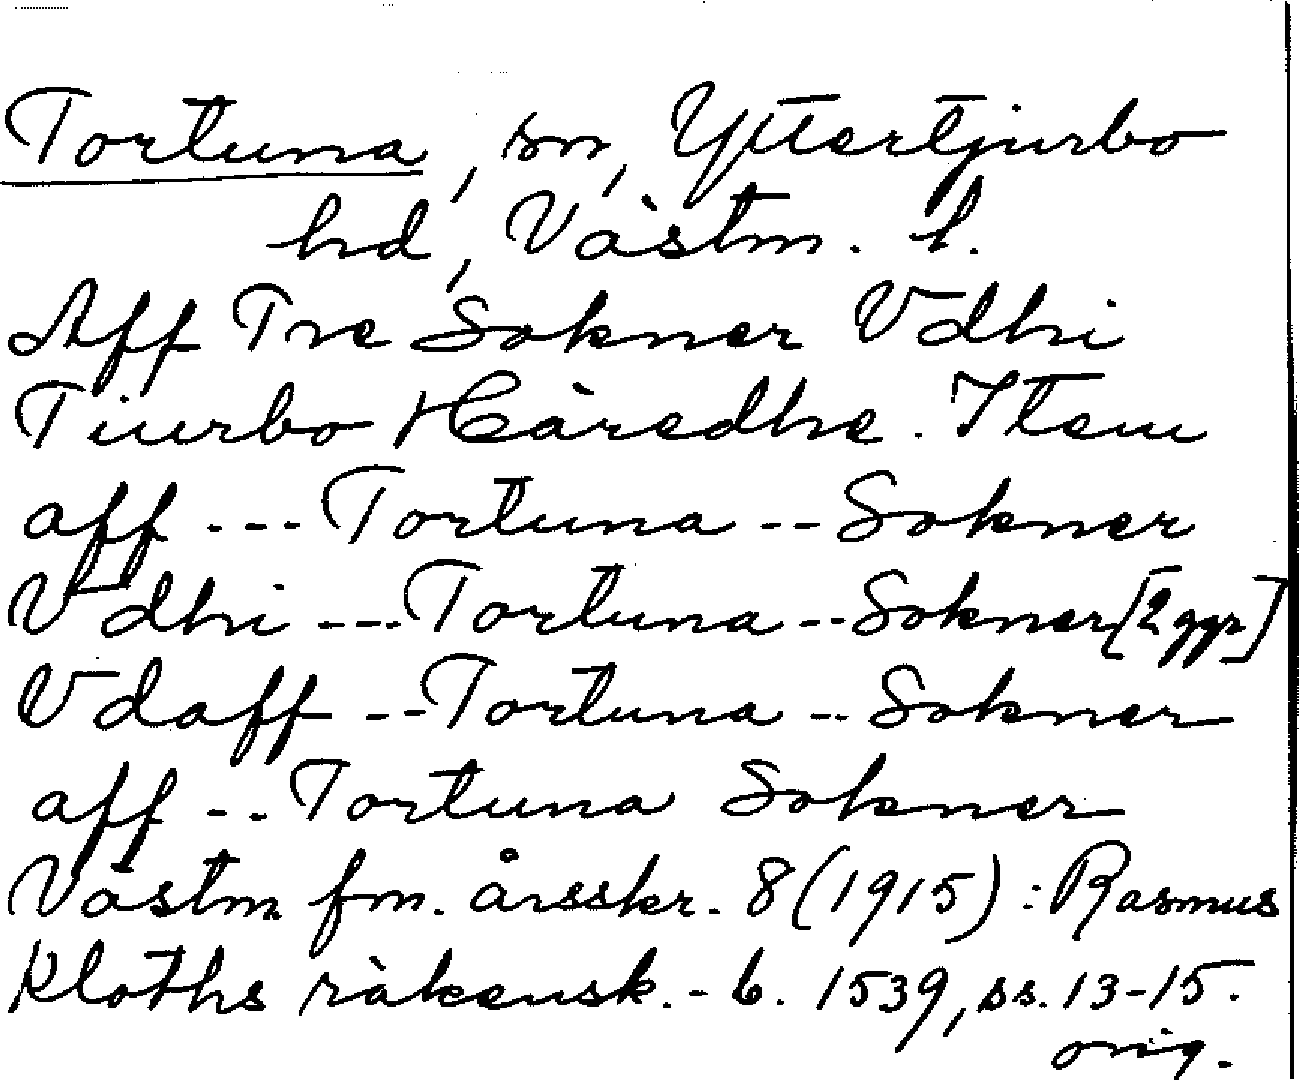 Tortuna, sn, Yttertjurbo
hd, Västm. l.
Aff Tre Sokner Vdhi
Tiurbo Häredhe. Item
aff --- Tortuna -- Sokner
Vdhi --- Tortuna -- Sokner [2 ggr]
Vdaff -- Tortuna -- Sokner
aff -- Tortuna Sokner
Västm fm. årsskr. 8 (1915): Rasmus
Kloths räkensk.- b. 1539, ss. 13-15.
orig.